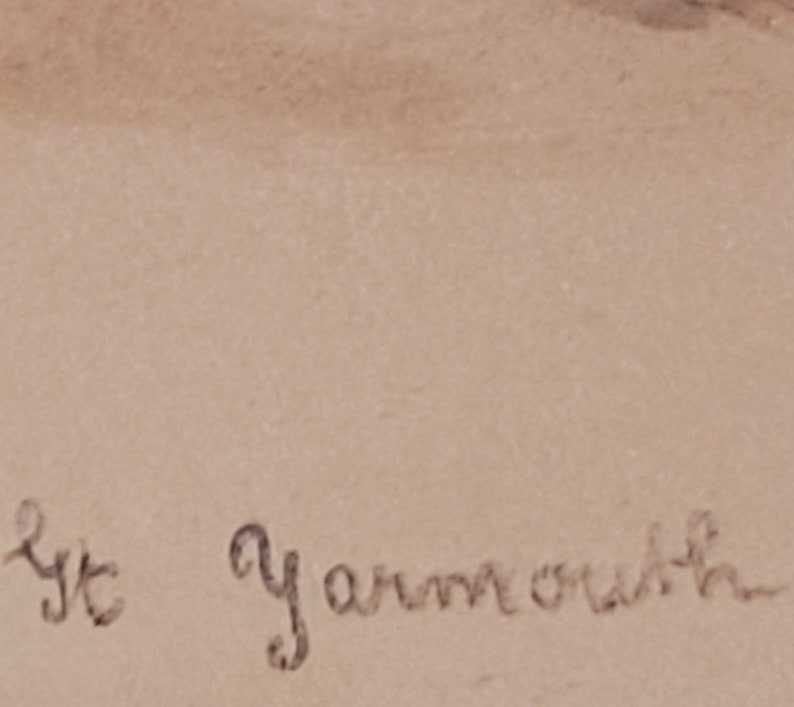 Gt Yarmouth